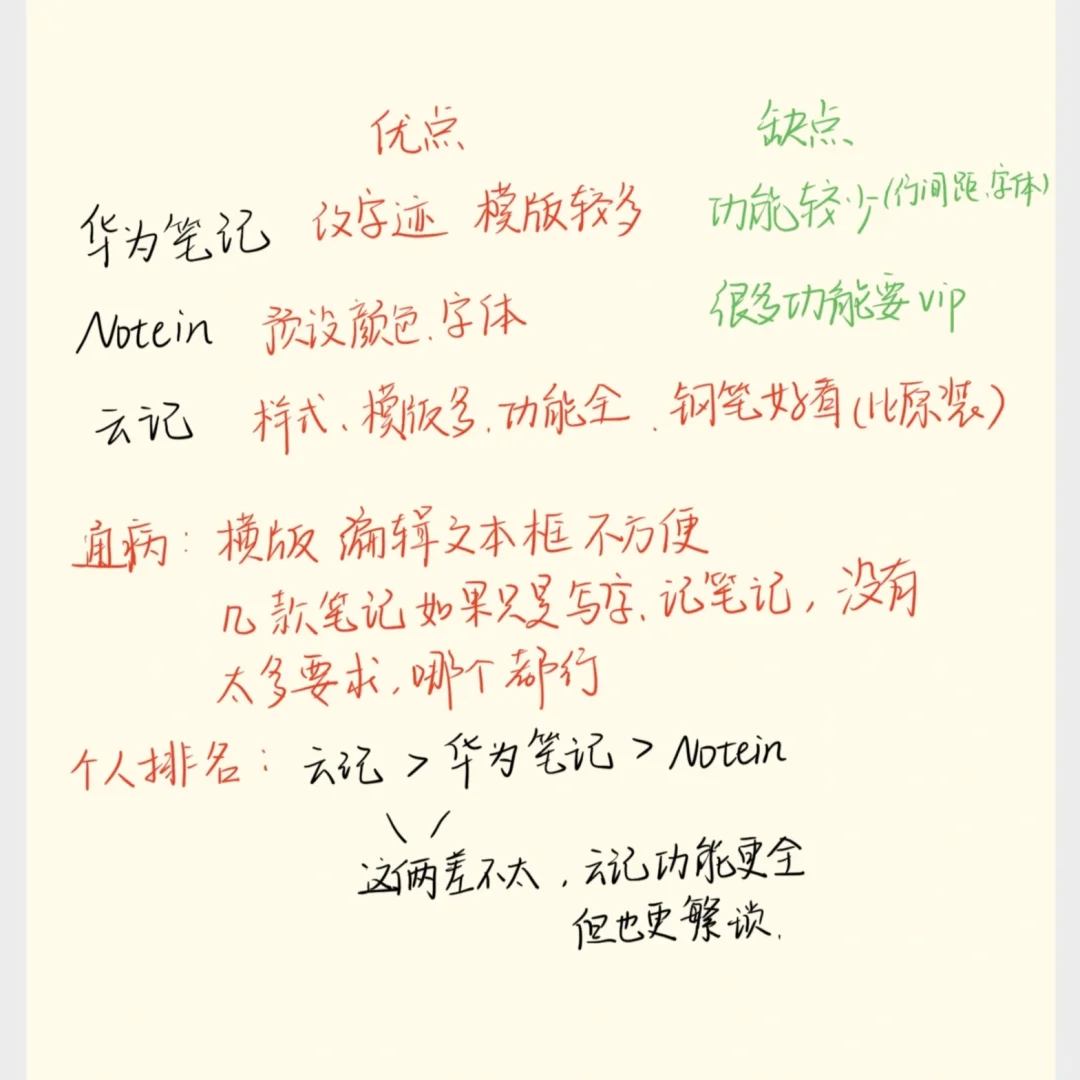 优点 缺点
华为笔记 仪字迹 模版较多 功能较少(行间距、字体)
Notein 预设颜色、字体 很多功能要vip
云记 样式、模版多、功能全、钢笔好看(比原装)
通病: 横版 编辑文本框不方便
几款笔记如果只是写字、记笔记,没有
太多要求,哪个都行
个人排名: 云记 > 华为笔记 > Notein
这俩差不太,云记功能更全
但也更繁琐.